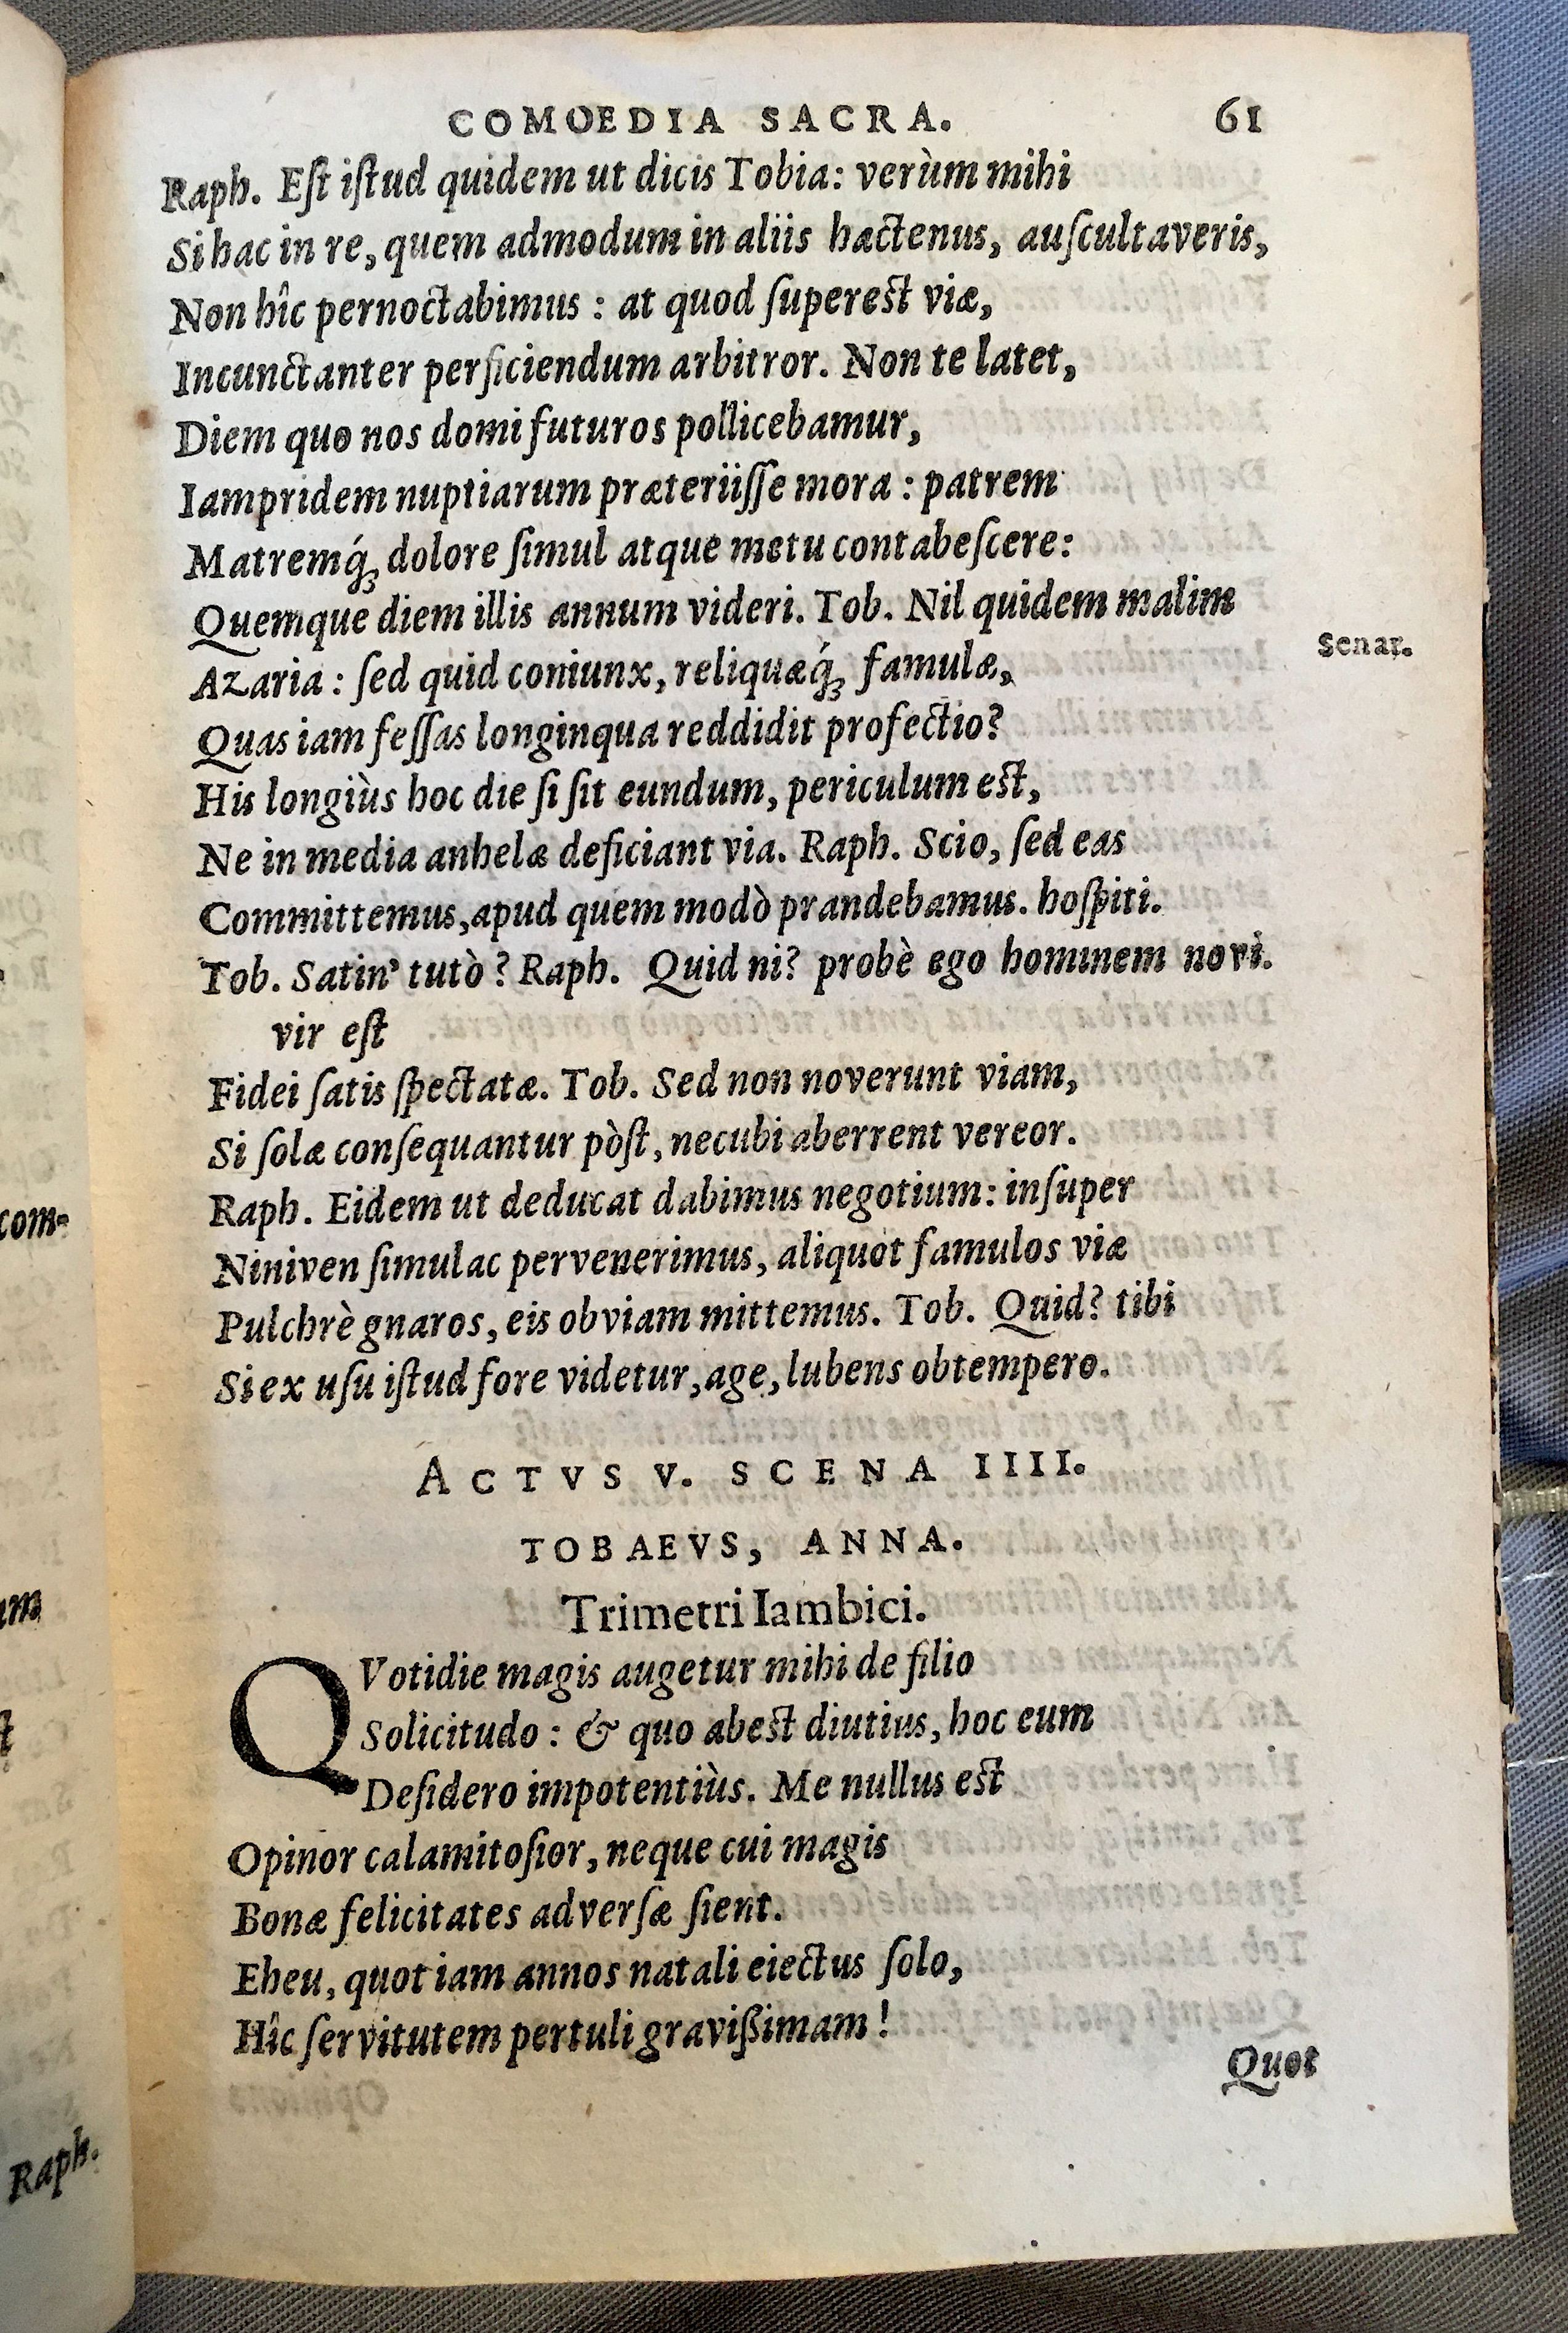 COMOEDIA SACRA. 61
Raph. Eſt iſtud quidem ut dicis Tobia: verùm mihi
Si hac in re, quem admodum in aliis hactenus, auſcultaveris,
Non hîc pernoctabimus : at quod ſupereſt viæ,
Incunctanter perficiendum arbitror. Non te latet,
Diem quo nos domi futuros pollicebamur,
Iampridem nuptiarum præteriiſſe mora : patrem
Matremq́ꝫ dolore ſimul atque metu contabeſcere:
Quemque diem illis annum videri. Tob. Nil quidem malim
Senar.
Azaria : ſed quid coniunx, reliquæq́ꝫ famulæ,
Quas iam feſſas longinqua reddidit profectio?
His longiùs hoc die ſi ſit eundum, periculum eſt,
Ne in media anhelæ deficiant via. Raph. Scio, ſed eas
Committemus, apud quem modò prandebamus. hoſpiti.
Tob. Satin' tutò ? Raph. Quid ni? probè ego hominem novi.
vir eſt
Fidei ſatis ſpectatæ. Tob. Sed non noverunt viam,
Si ſolæ conſequantur pòſt, necubi aberrent vereor.
Raph. Eidem ut deducat dabimus negotium: inſuper
Niniven ſimulac pervenerimus, aliquot famulos viæ
Pulchrè gnaros, eis obviam mittemus. Tob. Quid? tibi
Si ex uſu iſtud fore videtur, age, lubens obtempero.
ACTVS V. SCENA IIII.
TOBAEVS, ANNA.
Trimetri Iambici.
QVotidie magis augetur mihi de filio
Solicitudo : & quo abeſt diutius, hoc eum
Deſidero impotentiùs. Me nullus eſt
Opinor calamitoſior, neque cui magis
Bonæ felicitates adverſæ ſient.
Eheu, quot iam annos natali eiectus ſolo,
Hîc ſervitutem pertuli gravißimam !
Quot
com-
um
ſt
Raph.